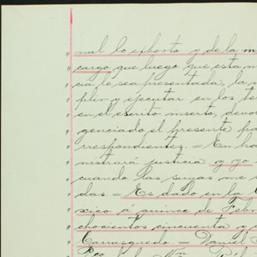 nal lo exhorto y de la m
cargo que luego que esta m
cia le sea presentada, la m
plir y ejecutar en los te
en el escrito inserto, devo
genciado el presente po
rrespondientes. — En ha
nistrará justicia y yo
cuando las suyas me
das — Es dado en la
xico á quince de Febr
chocientos cincuenta y
Carrasquedo — Daniel